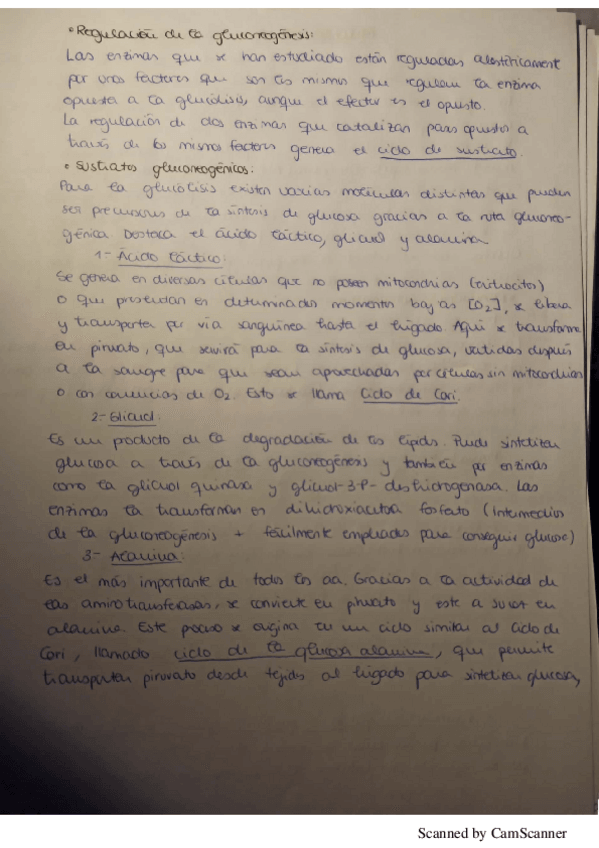 • Regulación de la gluconeogénesis:
Las enzimas que se han estudiado están reguladas alostéricament
por unos factores que son los mismos que regulan la enzima
opuesta a la glucólisis, aunque el efector es el opuesto.
La regulación de dos enzimas que catalizan pasos opuestos a
través de los mismos factores genera el ciclo de sustrato.
• Sustratos gluconeogénicos:
Para la glucólisis existen varias moléculas distintas que pueden
ser precursores de la síntesis de glucosa gracias a la ruta gluconeo-
génica. Destaca el ácido láctico, glicerol y alanina
1- Ácido láctico:
Se genera en diversas células que no poseen mitocondrias (eritrocitos)
o que presentan en determinados momentos bajas [O2], se libera
y transporta por vía sanguínea hasta el hígado. Aquí se transforma
en piruvato, que servirá para la síntesis de glucosa, vertidas después
a la sangre para que sean aprovechadas por células sin mitocondrias
o con carencias de O2. Esto se llama Ciclo de Cori.
2- Glicerol:
Es un producto de la degradación de los lípidos. Puede sintetizar
glucosa a través de la gluconeogénesis y también por enzimas
como la glicerol quinasa y glicerol-3-P- deshidrogenasa. Las
enzimas la transforman en dihidroxiacetona fosfato (intermedios
de la gluconeogénesis + fácilmente empleados para conseguir glucosa)
3- Alanina:
Es el más importante de todos los aa. Gracias a la actividad de
las aminotransferasas, se convierte en piruvato y este a su vez en
alanina. Este proceso se origina en un ciclo similar al ciclo de
Cori, llamado ciclo de la glucosa alanina, que permite
transportar piruvato desde tejidos al hígado para sintetizar glucosa,
Scanned by CamScanner